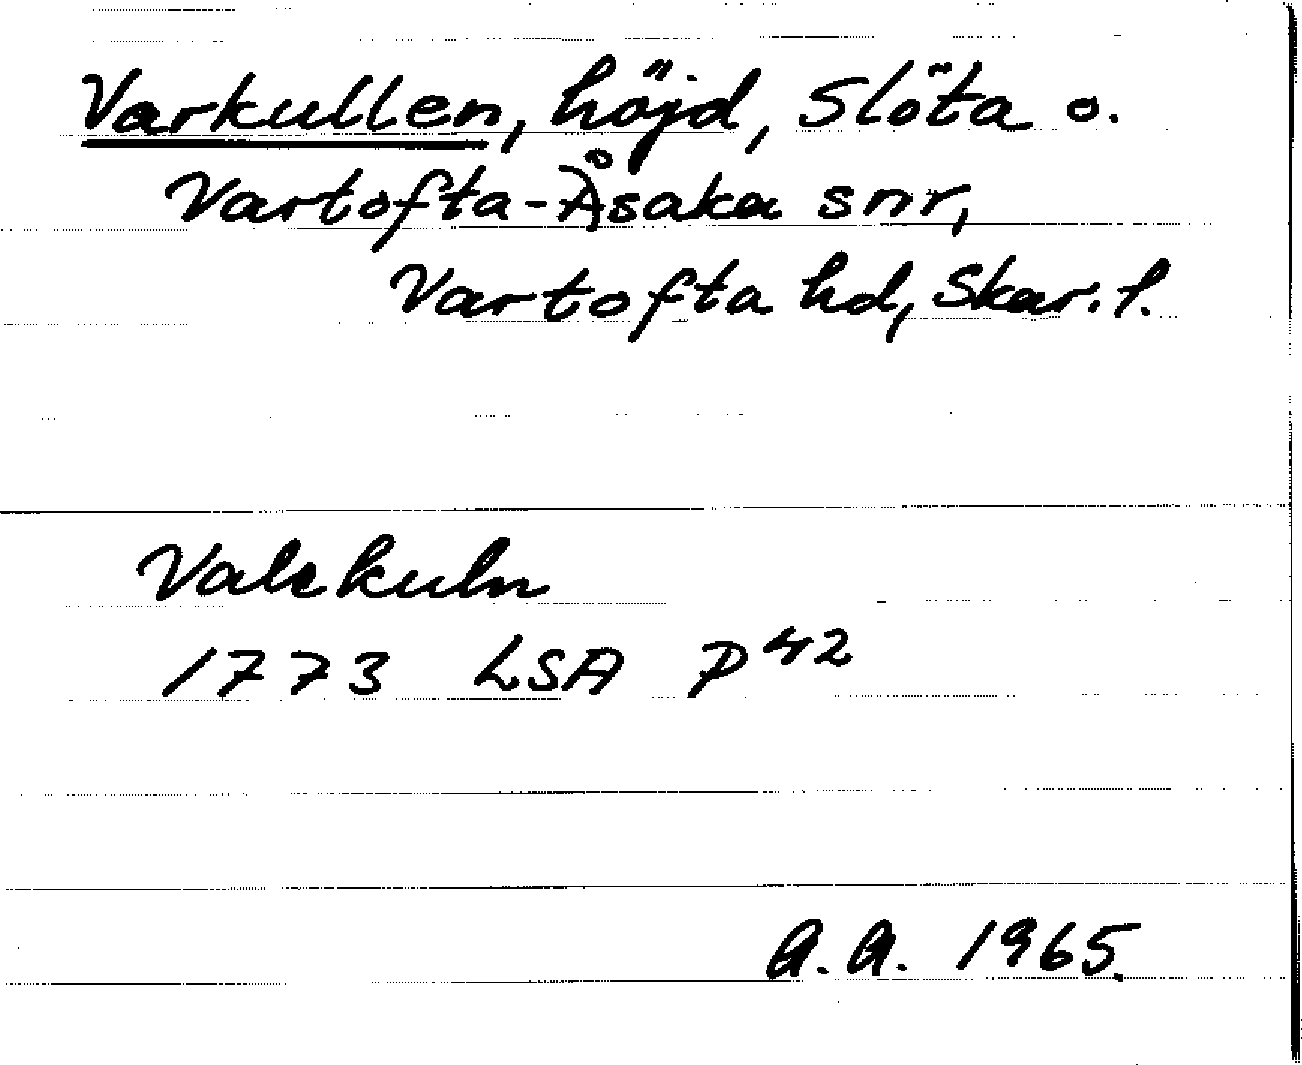 Varkullen, höjd, Slöta o.
Vartofta-Åsaka snr,
Vartofta hd, Skar. l.
Valekuln
1773 LSA P42
A.A. 1965.